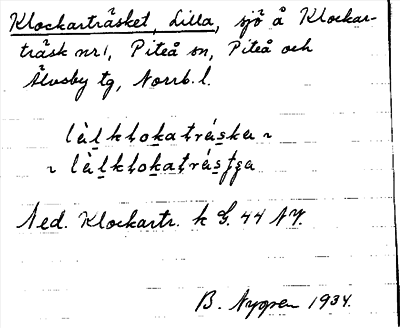 Klockarträsket, Lilla, sjö å Klockar-
träsk nr 1, Piteå sn, Piteå och
Älvsby tg, Norrb. l.
làlklokatráska ~
~ làlklokatrásʃga
Ned. Klockartr. k G. 44 NY.
B. Nygren 1934.